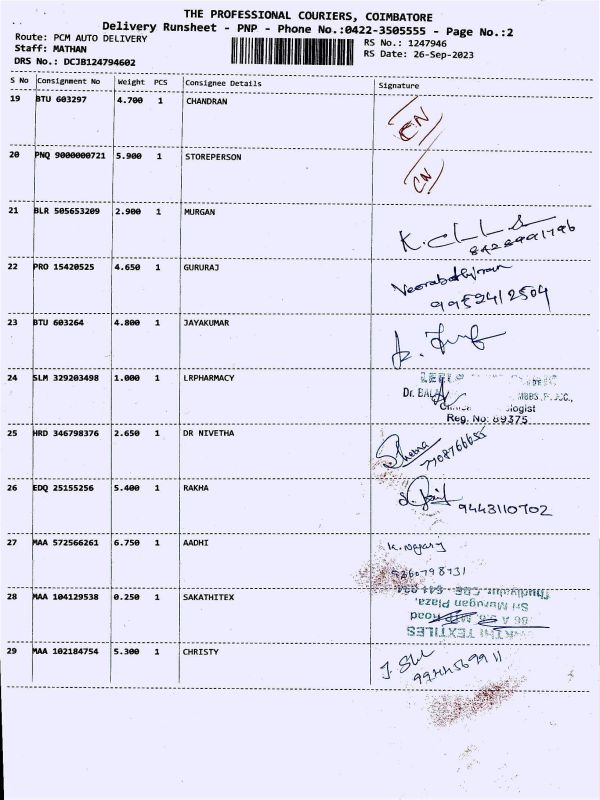 THE PROFESSIONAL COURIERS, COIMBATORE
Delivery Runsheet - PNP - Phone No.:0422-3505555 - Page No.:2
Route: PCM AUTO DELIVERY
Staff: MATHAN
DRS No.: DCJB124794602
RS No.: 1247946
RS Date: 26-Sep-2023
S No Consignment No Weight PCS Consignee Details Signature
19 BTU 603297 4.700 1 CHANDRAN
CN
20 PNQ 9000000721 5.900 1 STOREPERSON
CN
21 BLR 505653209 2.900 1 MURGAN
K.
22 PRO 15420525 4.650 1 GURURAJ
9952412504
23 BTU 603264 4.800 1 JAYAKUMAR
24 SLM 329203498 1.000 1 LRPHARMACY
Dr.
MBBS,
Reg. No: 89375
25 HRD 346798376 2.650 1 DR NIVETHA
7708766655
26 EDQ 25155256 5.400 1 RAKHA
9443110702
27 MAA 572566261 6.750 1 AADHI
K. Nagaraj
28 MAA 104129538 0.250 1 SAKATHITEX
Thudiyalur, CBE - 641 034
Sri Murugan Plaza,
Road
TEXTILES
29 MAA 102184754 5.300 1 CHRISTY
9944569911